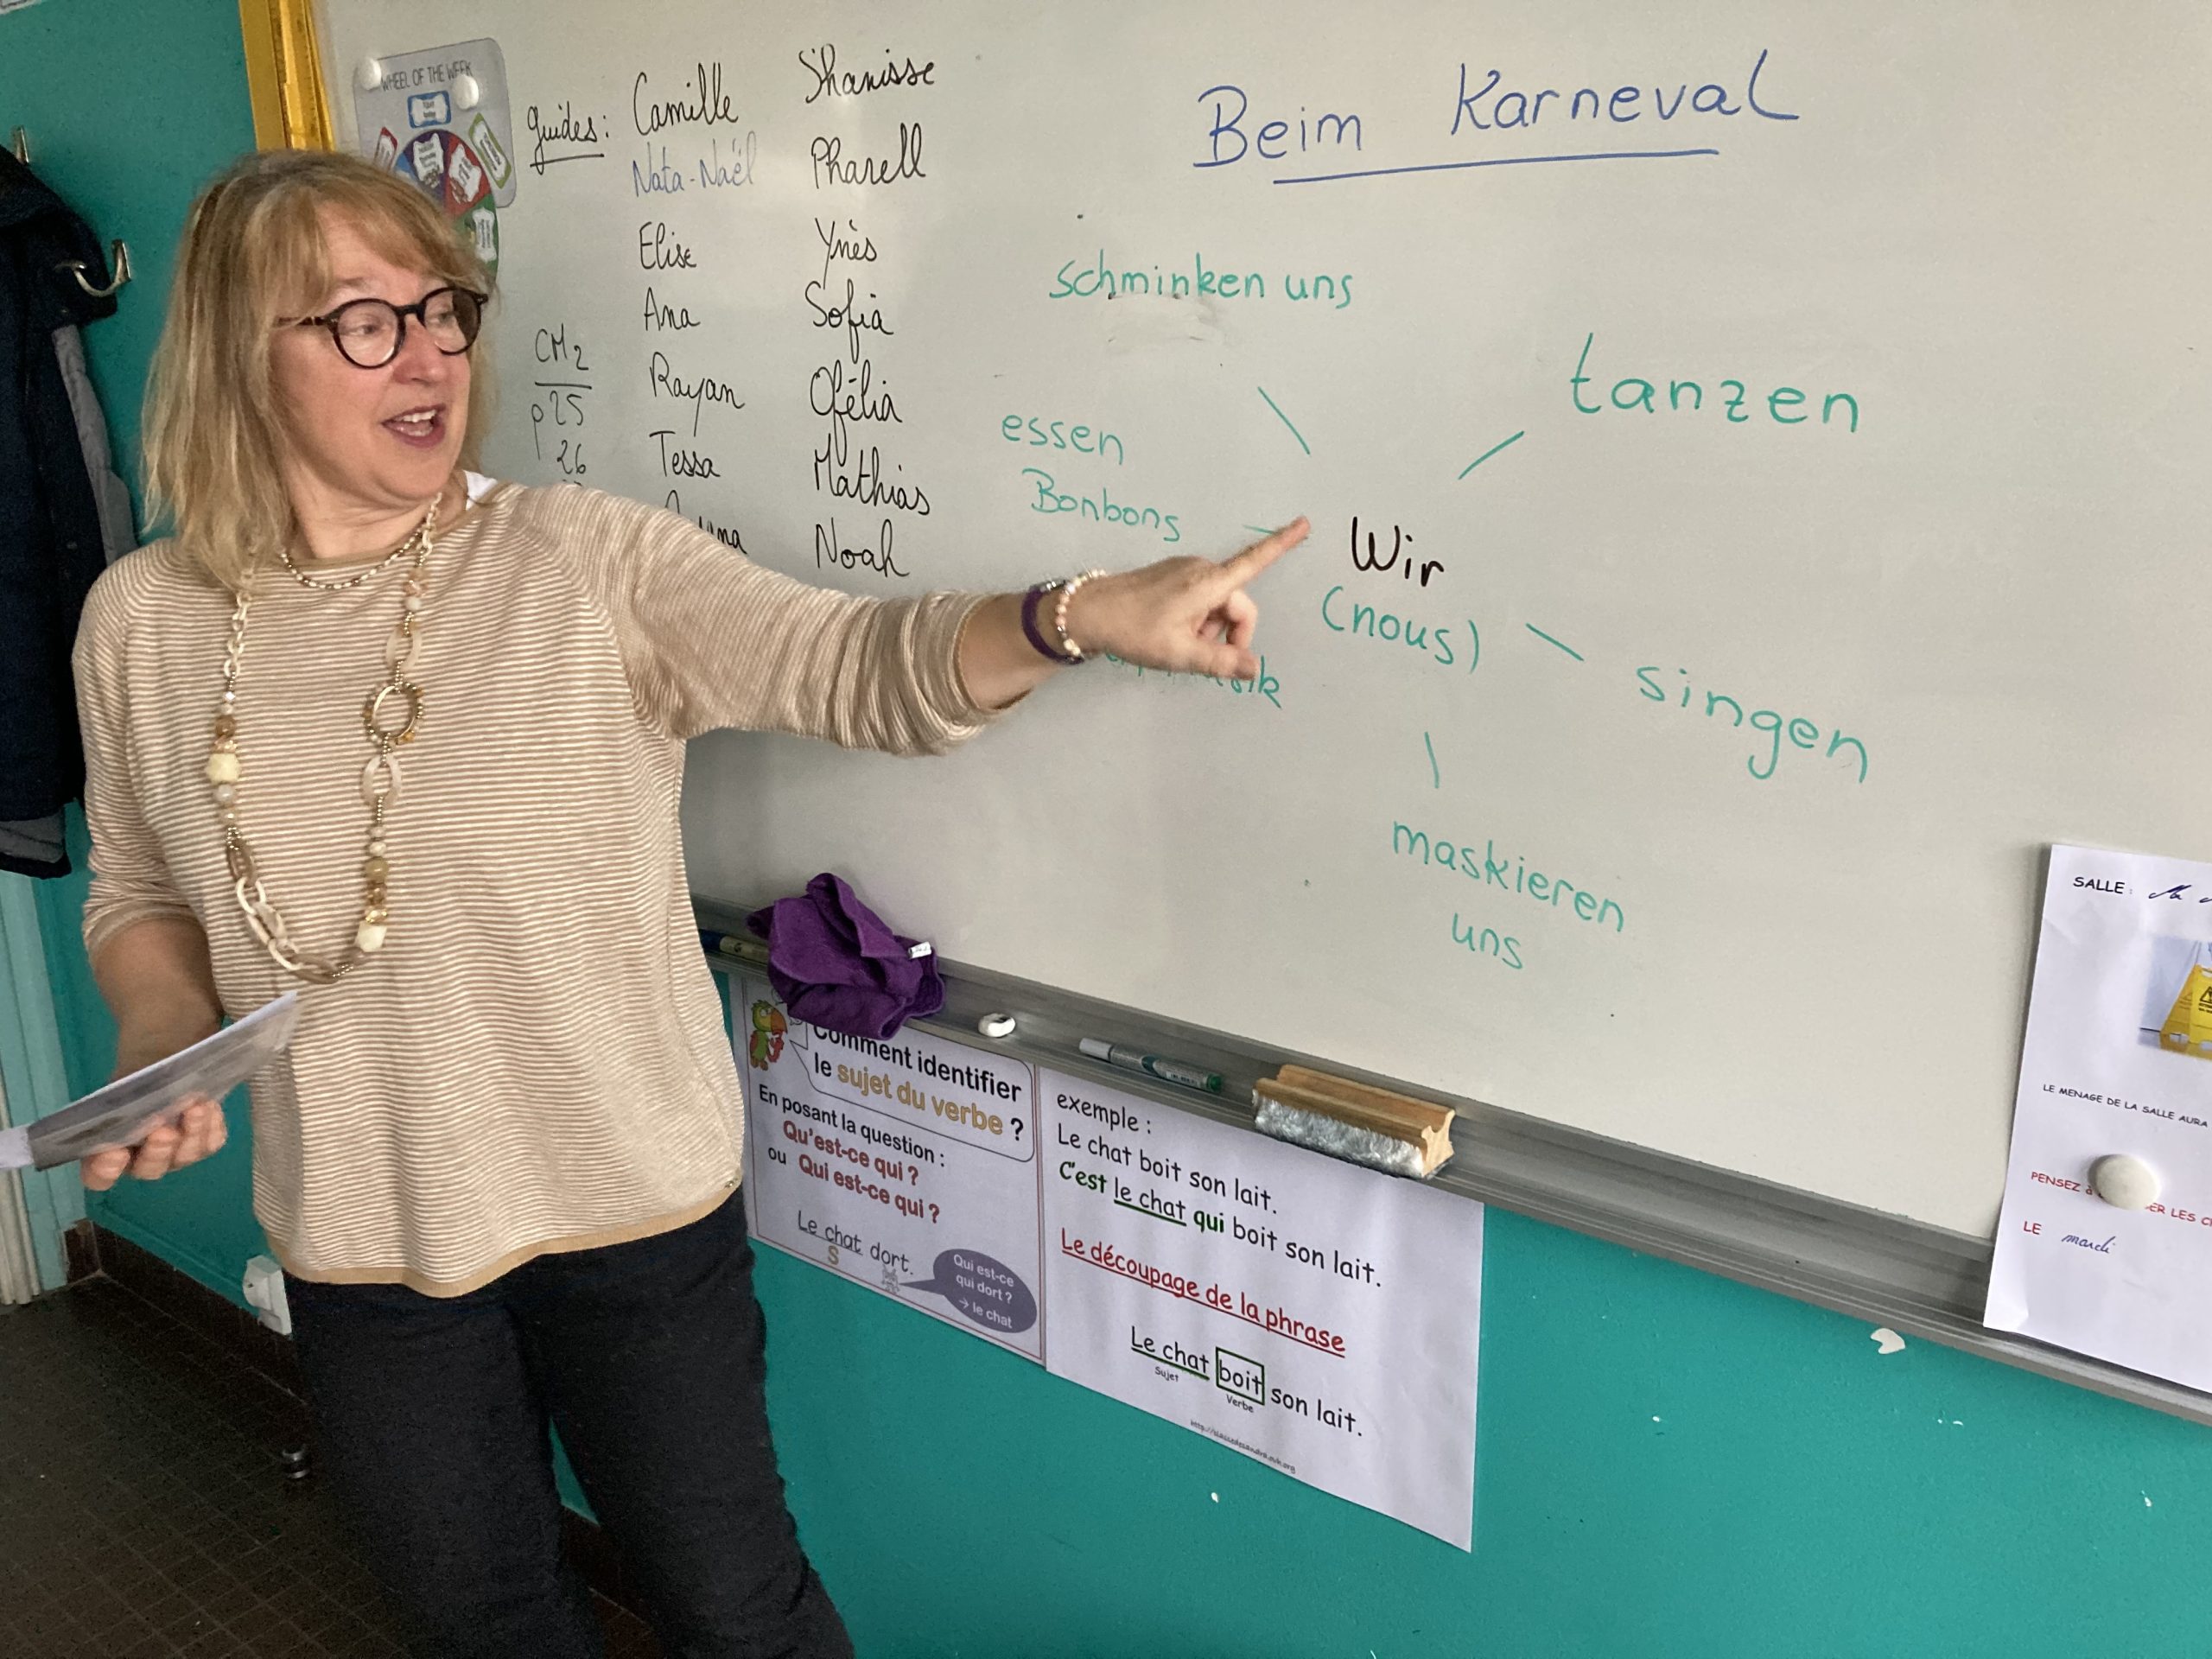 WHEEL OF THE WEEK
guides:
Camille
Nata-Naël
Elise
Ana
Rayan
Tessa
Shanisse
Pharell
Ynès
Sofia
Ofélia
Mathias
Noah
CM2
p25
26
Beim Karneval
schminken uns
tanzen
essen
Bonbons
Wir
(nous)
singen
maskieren
uns
Comment identifier
le sujet du verbe ?
En posant la question :
Qu'est-ce qui ?
ou Qui est-ce qui ?
Le chat dort.
S
Qui est-ce
qui dort ?
→ le chat
exemple :
Le chat boit son lait.
C'est le chat qui boit son lait.
Le découpage de la phrase
Le chat boit son lait.
Sujet
Verbe
SALLE :
LE MENAGE DE LA SALLE AURA
PENSEZ à
LES
LE mardi